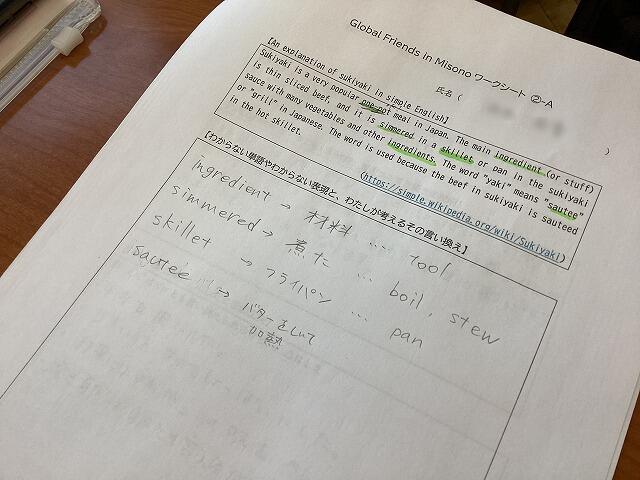 Global Friends in Misono ワークシート ②-A
氏名 ( )
【An explanation of sukiyaki in simple English】
Sukiyaki is a very popular one-pot meal in Japan. The main ingredient (or stuff)
is thin sliced beef, and it is simmered in a skillet or pan in the sukiyaki
sauce with many vegetables and other ingredients. The word "yaki" means "sautee"
or "grill" in Japanese. The word is used because the beef in sukiyaki is sauteed
in the hot skillet.
(https://simple.wikipedia.org/wiki/Sukiyaki)
【わからない単語やわからない表現と、わたしが考えるその言い換え】
Ingredient → 材料 … tool
simmered → 煮た … boil, stew
skillet → フライパン … pan
sautee → バターをしいて
加熱